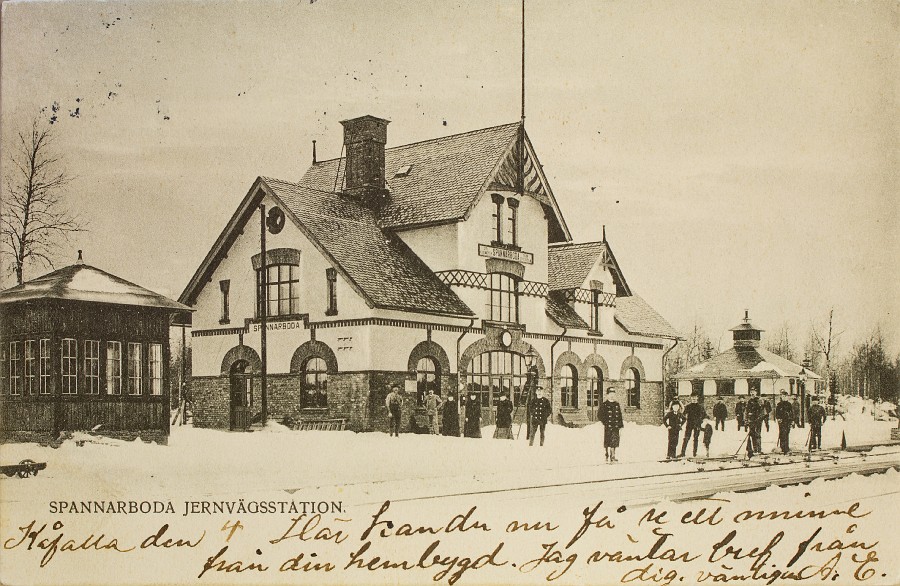 SPANNARBODA
SPANNARBODA
SPANNARBODA JERNVÄGSSTATION.
Kåfalla den 4 Här kan du nu få se ett minne
från din hembygd. Jag väntar bref från
dig. vänligen A. E.